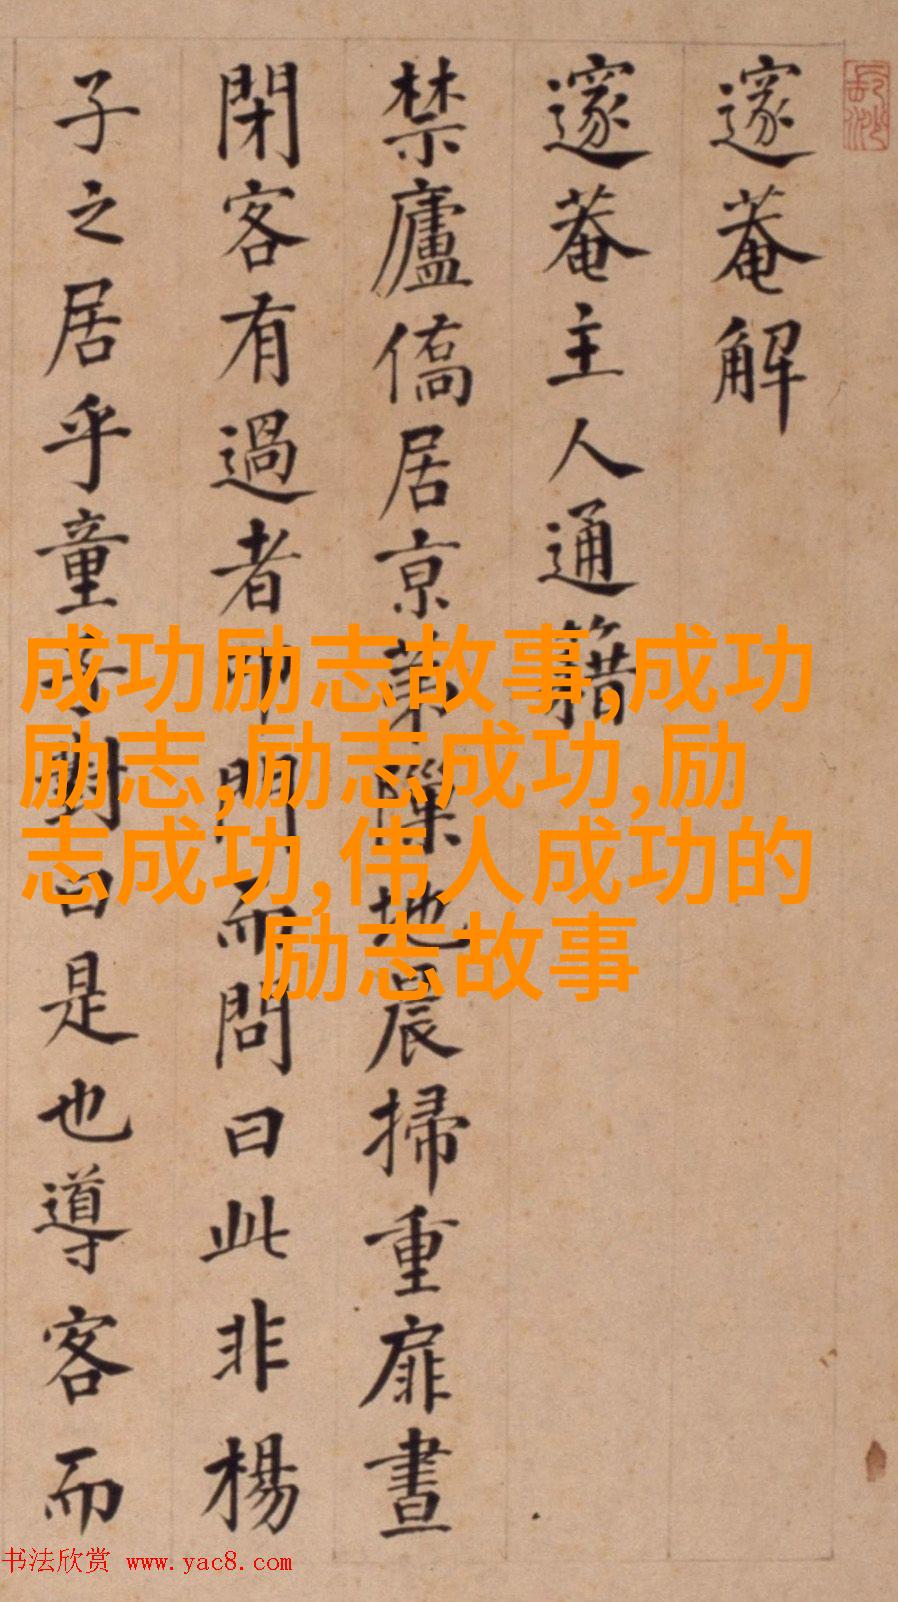 邃菴解
邃菴主人通籍
禁廬僑居亰第隟地晨掃重扉晝
閉客有過者叩門而問曰此非楊
子之居乎童子對曰是也導客而
成功励志故事,成功
励志,励志成功,励
志成功,伟人成功的
励志故事
书法欣赏 www.yac8.com